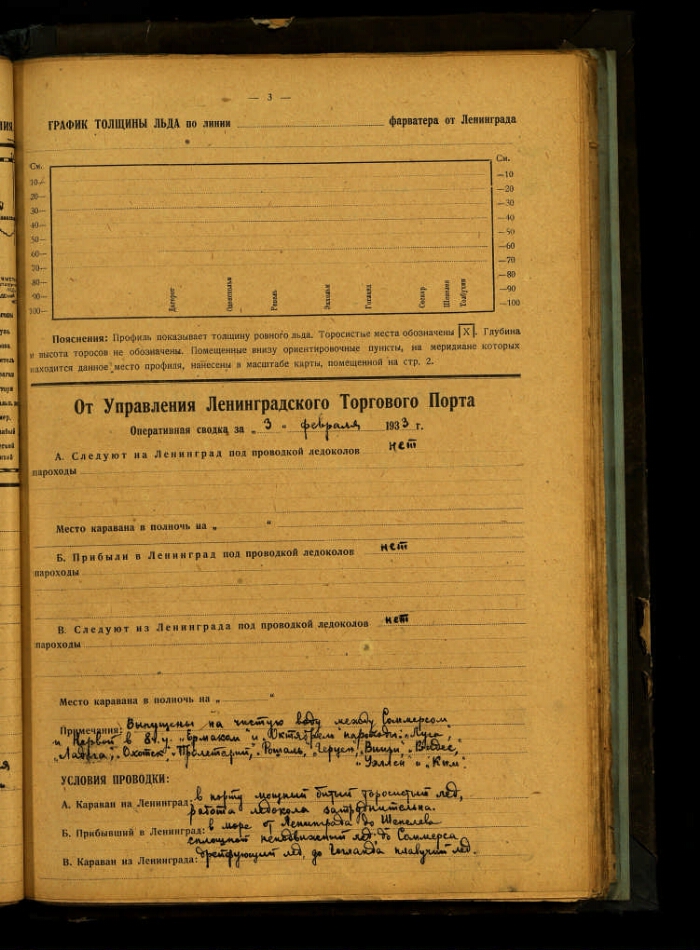 — 3 —
ГРАФИК ТОЛЩИНЫ ЛЬДА по линии фарватера от Ленинграда
См. См.
10— —10
20— —20
30— —30
40— —40
50— —50
60— —60
70— —70
80— —80
90— —90
100— —100
Сескар Шепелев Толбухин
Пояснения: Профиль показывает толщину ровного льда. Торосистые места обозначены X. Глубина
и высота торосов не обозначены. Помещенные внизу ориентировочные пункты, на меридиане которых
находится данное место профиля, нанесены в масштабе карты, помещенной на стр. 2.
От Управления Ленинградского Торгового Порта
Оперативная сводка за „ 3 “ февраля 1933 г.
А. Следуют на Ленинград под проводкой ледоколов нет
пароходы
Место каравана в полночь на „ “
Б. Прибыли в Ленинград под проводкой ледоколов нет
пароходы
В. Следуют из Ленинграда под проводкой ледоколов нет
пароходы
Место каравана в полночь на „ “
Примечания: Выпущены на чистую воду между Соммерсом
и в „Ермаком“ и „Октябрем“ пароходы: „Луга“,
„Ладога“, „Охотск“, „Пролетарий“, „Рошаль“,
„Уэллей“ и „Ким“.
УСЛОВИЯ ПРОВОДКИ:
А. Караван на Ленинград: в порту мощный битый торосистый лед,
работа ледокола затруднительна.
Б. Прибывший в Ленинград: в море от Ленинграда до Шепелева
сплошной неподвижный лед, до Соммерса
В. Караван из Ленинграда: дрейфующий лед, до Гогланда плавучий лед.